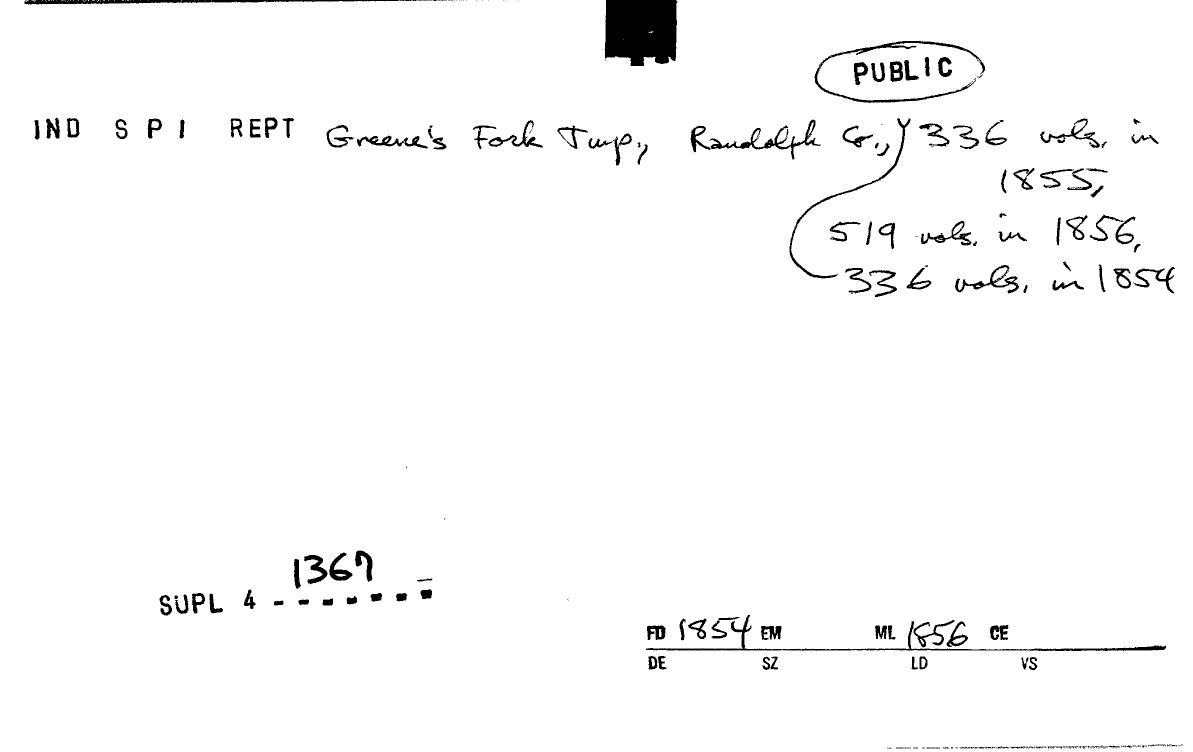 PUBLIC
IND S P I REPT Greene's Fork Twp., Randolph Co., 336 vols. in
1855,
519 vols. in 1856,
336 vols. in 1854
1367
SUPL 4 - - - - - - -
FD 1854 EM ML 1856 CE
DE SZ LD VS